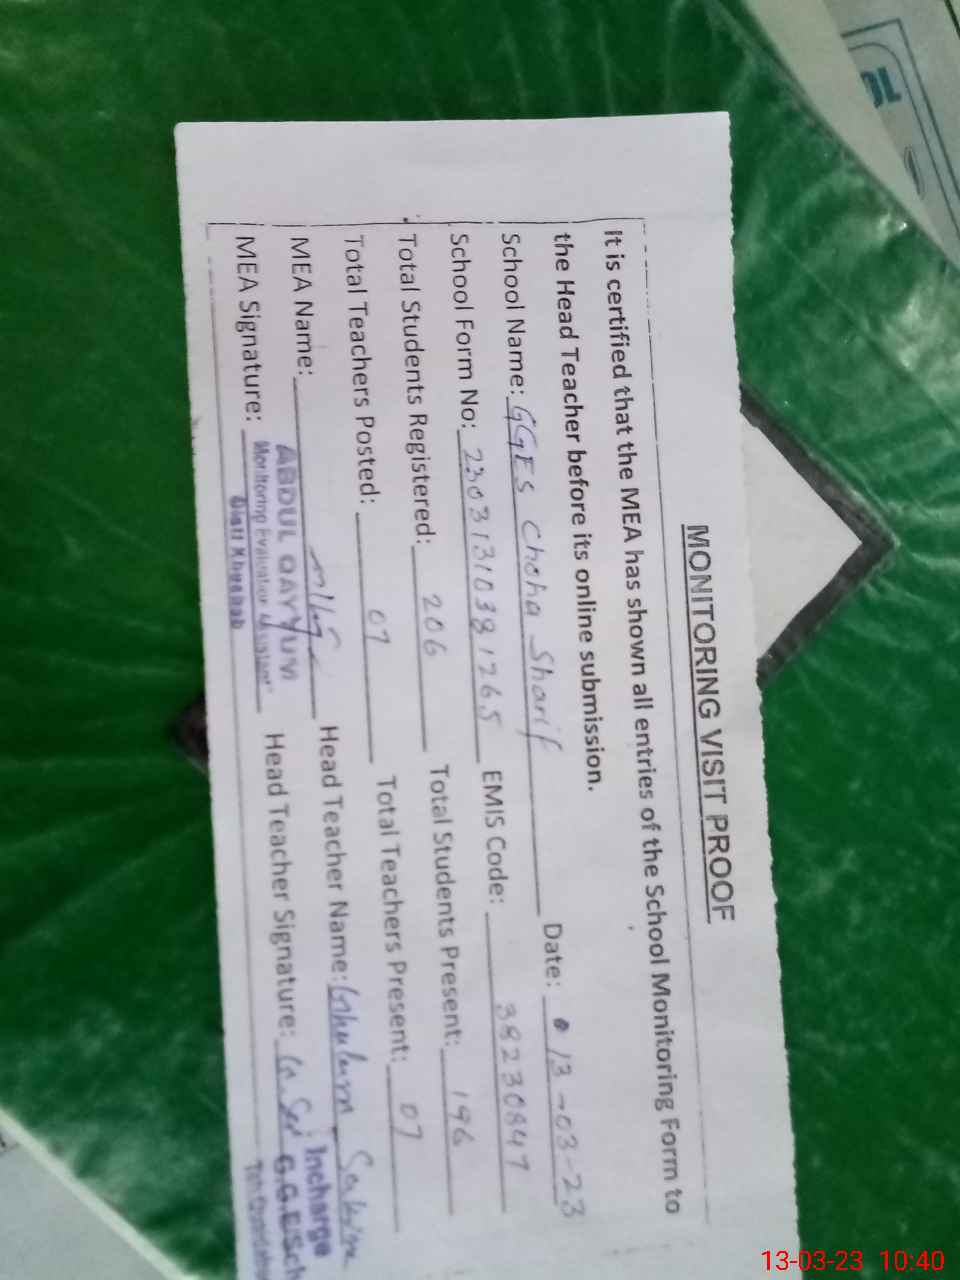 MONITORING VISIT PROOF
It is certified that the MEA has shown all entries of the School Monitoring Form to
the Head Teacher before its online submission.
School Name: GGES Choha Sharif Date: 13-03-23
School Form No: 23031310381265 EMIS Code: 38230847
Total Students Registered: 206 Total Students Present: 196
Total Teachers Posted: 07 Total Teachers Present: 07
MEA Name: Head Teacher Name: Ghulam Sakina
ABDUL QAYYUM
MEA Signature: Head Teacher Signature:
Monitoring Evaluation Assistant
Distt Khushab
Incharge
G.G.E/Sch
13-03-23 10:40